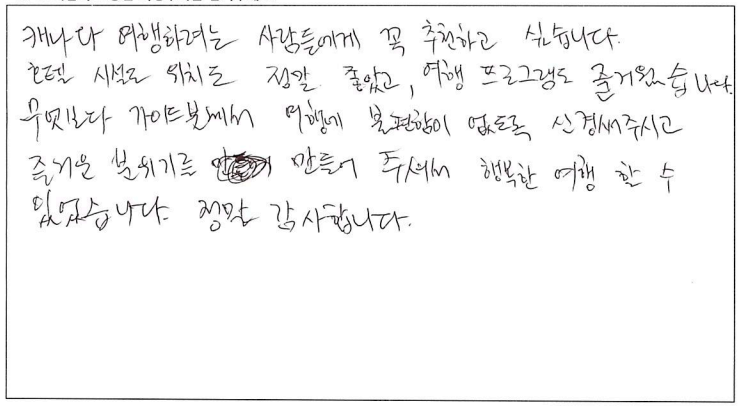 캐나다 여행하려는 사람들에게 꼭 추천하고 싶습니다.
호텔 시설도 위치도 정말 좋았고, 여행 프로그램도 즐거웠습니다.
무엇보다 가이드분께서 여행에 불편함이 없도록 신경써주시고
즐거운 분위기를 만들어 주셔서 행복한 여행 할 수
있었습니다. 정말 감사합니다.